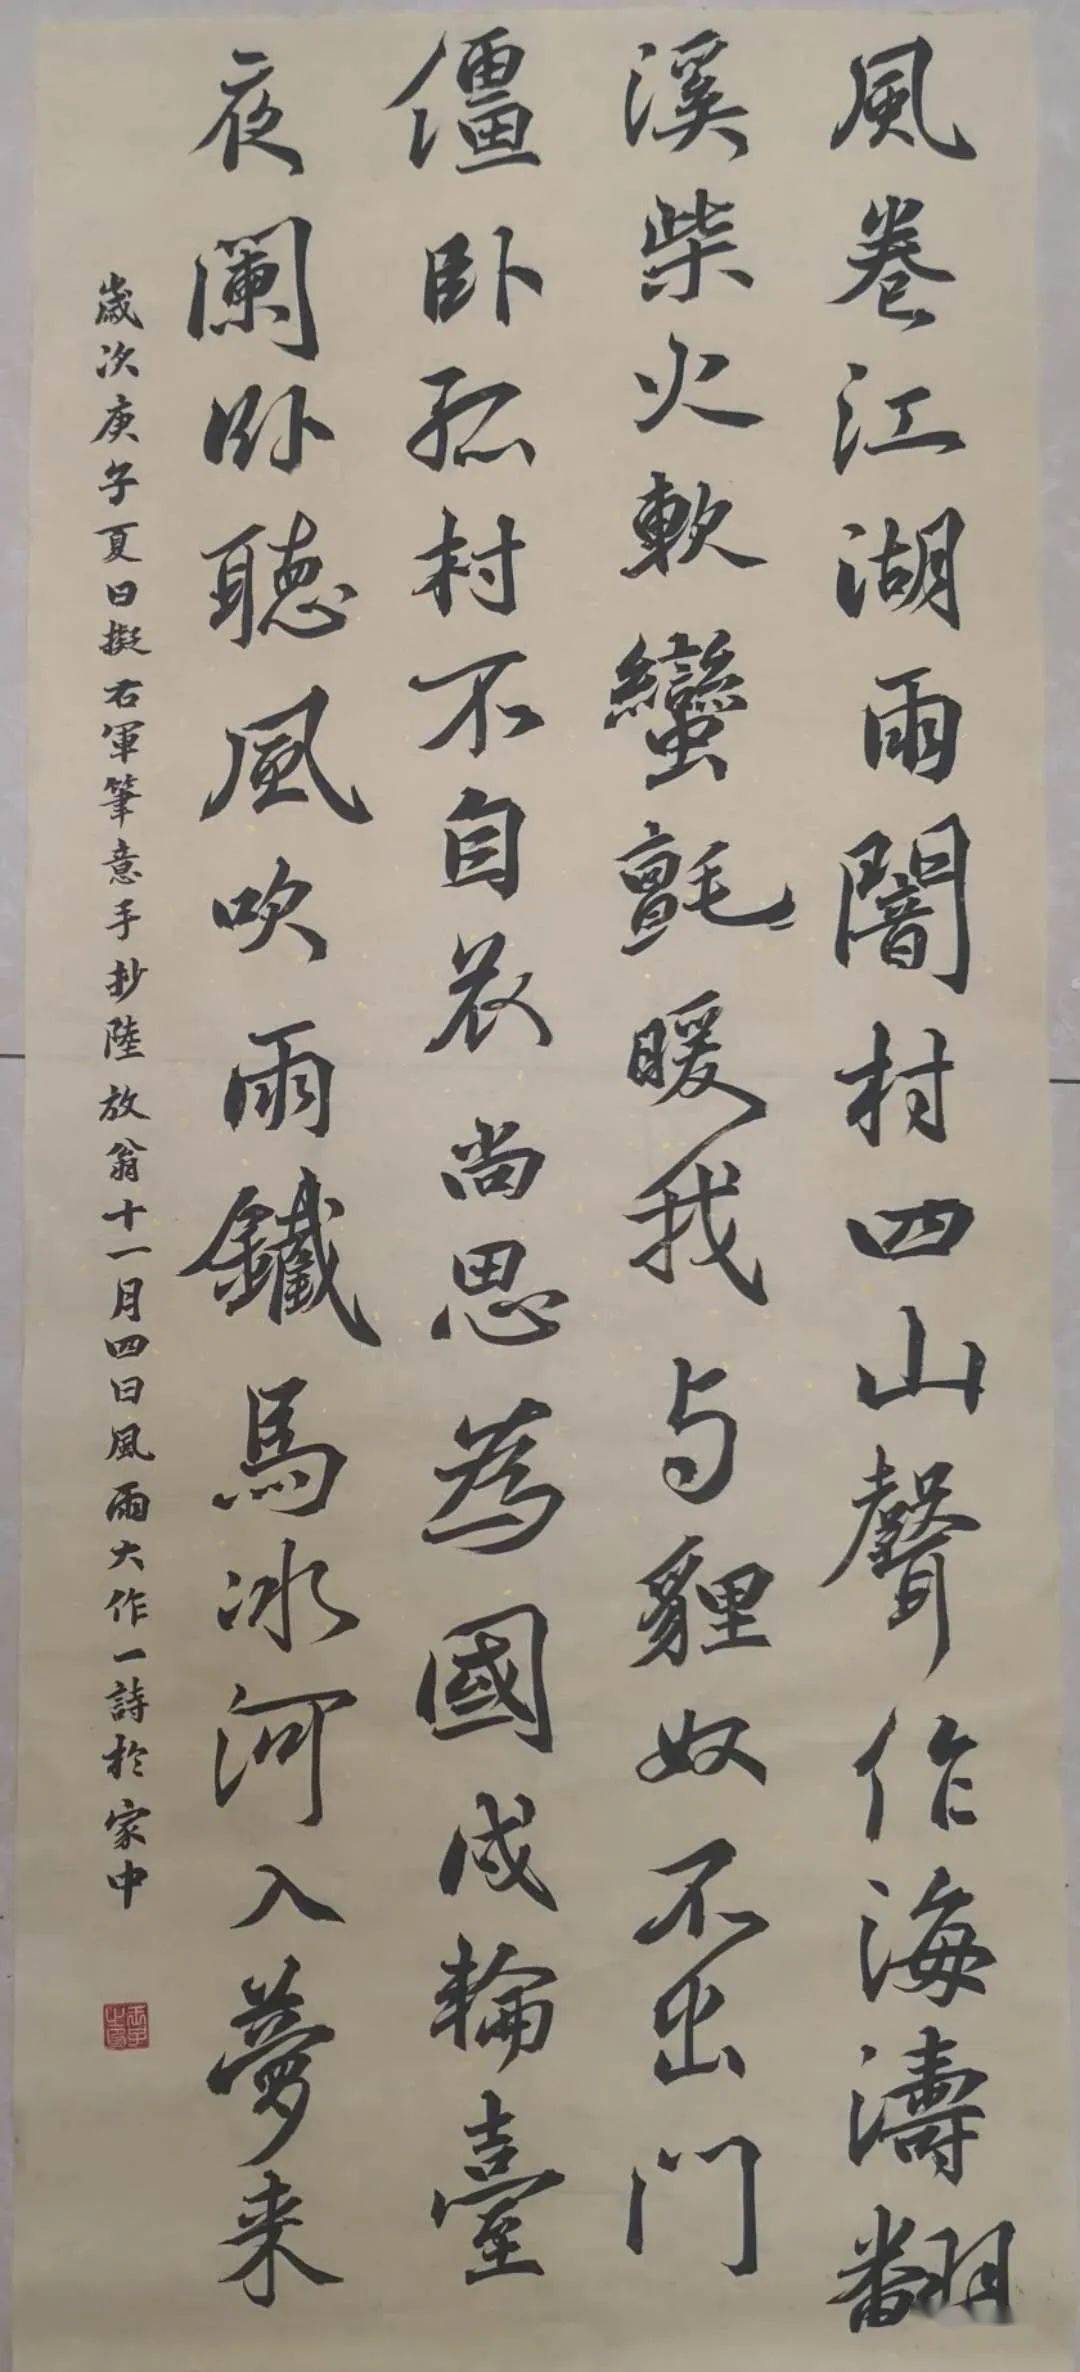 風卷江湖雨闇村四山聲作海濤翻
溪柴火軟蠻氈暖我与貍奴不出門
僵卧孤村不自哀尚思為國戍輪臺
夜闌卧聽風吹雨鐵馬冰河入夢来
歲次庚子夏日擬右軍筆意手抄陸放翁十一月四日風雨大作一詩於家中